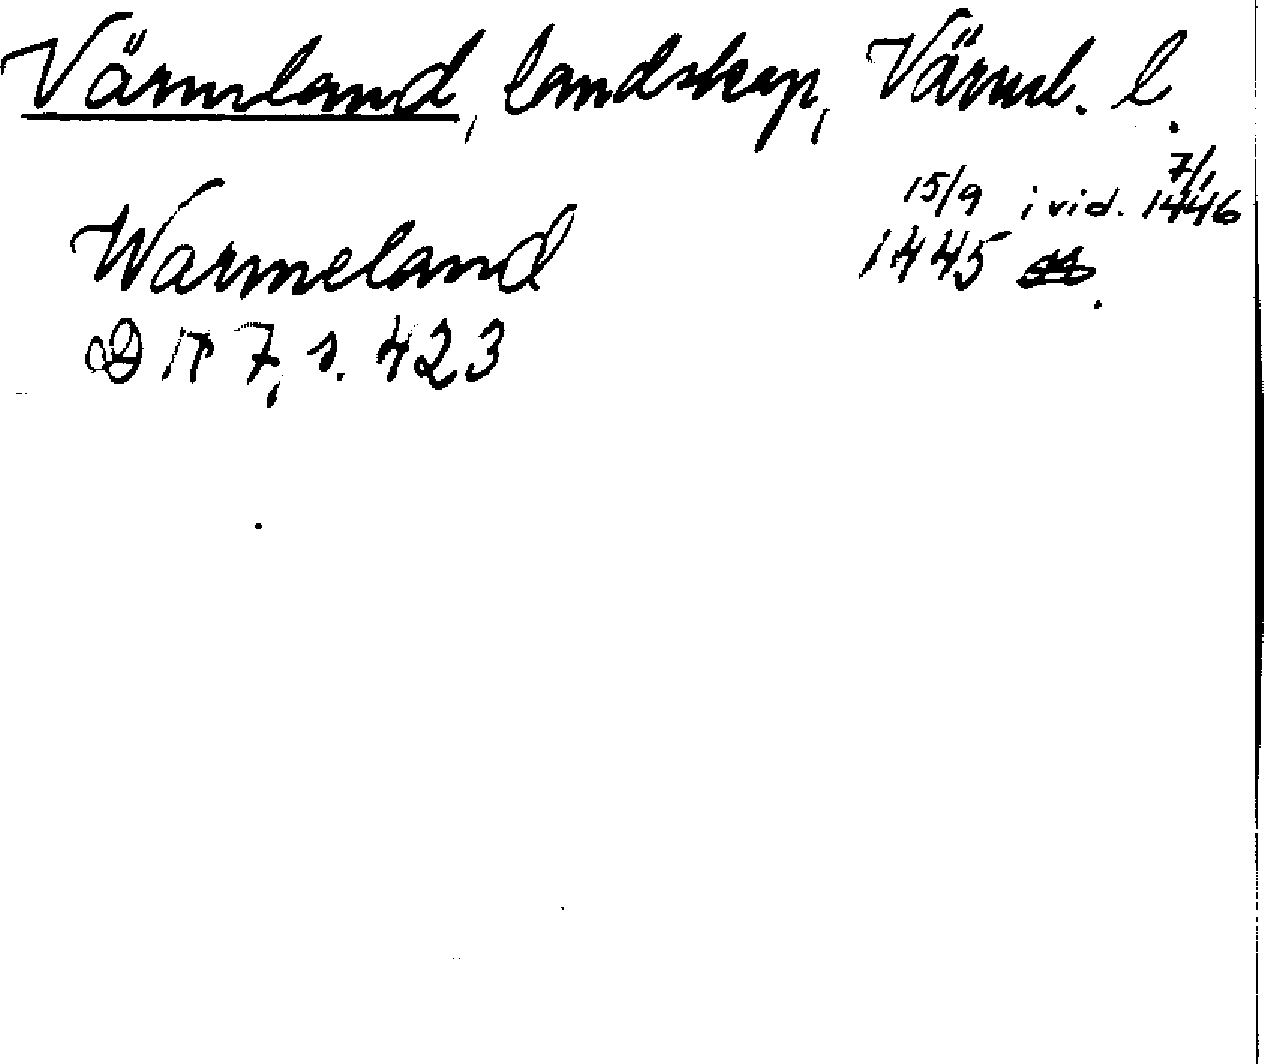 Värmland, landskap, Värml. l.
15/9 i vid. 7/1 1446
Warmeland 1445
DN 7, s. 423